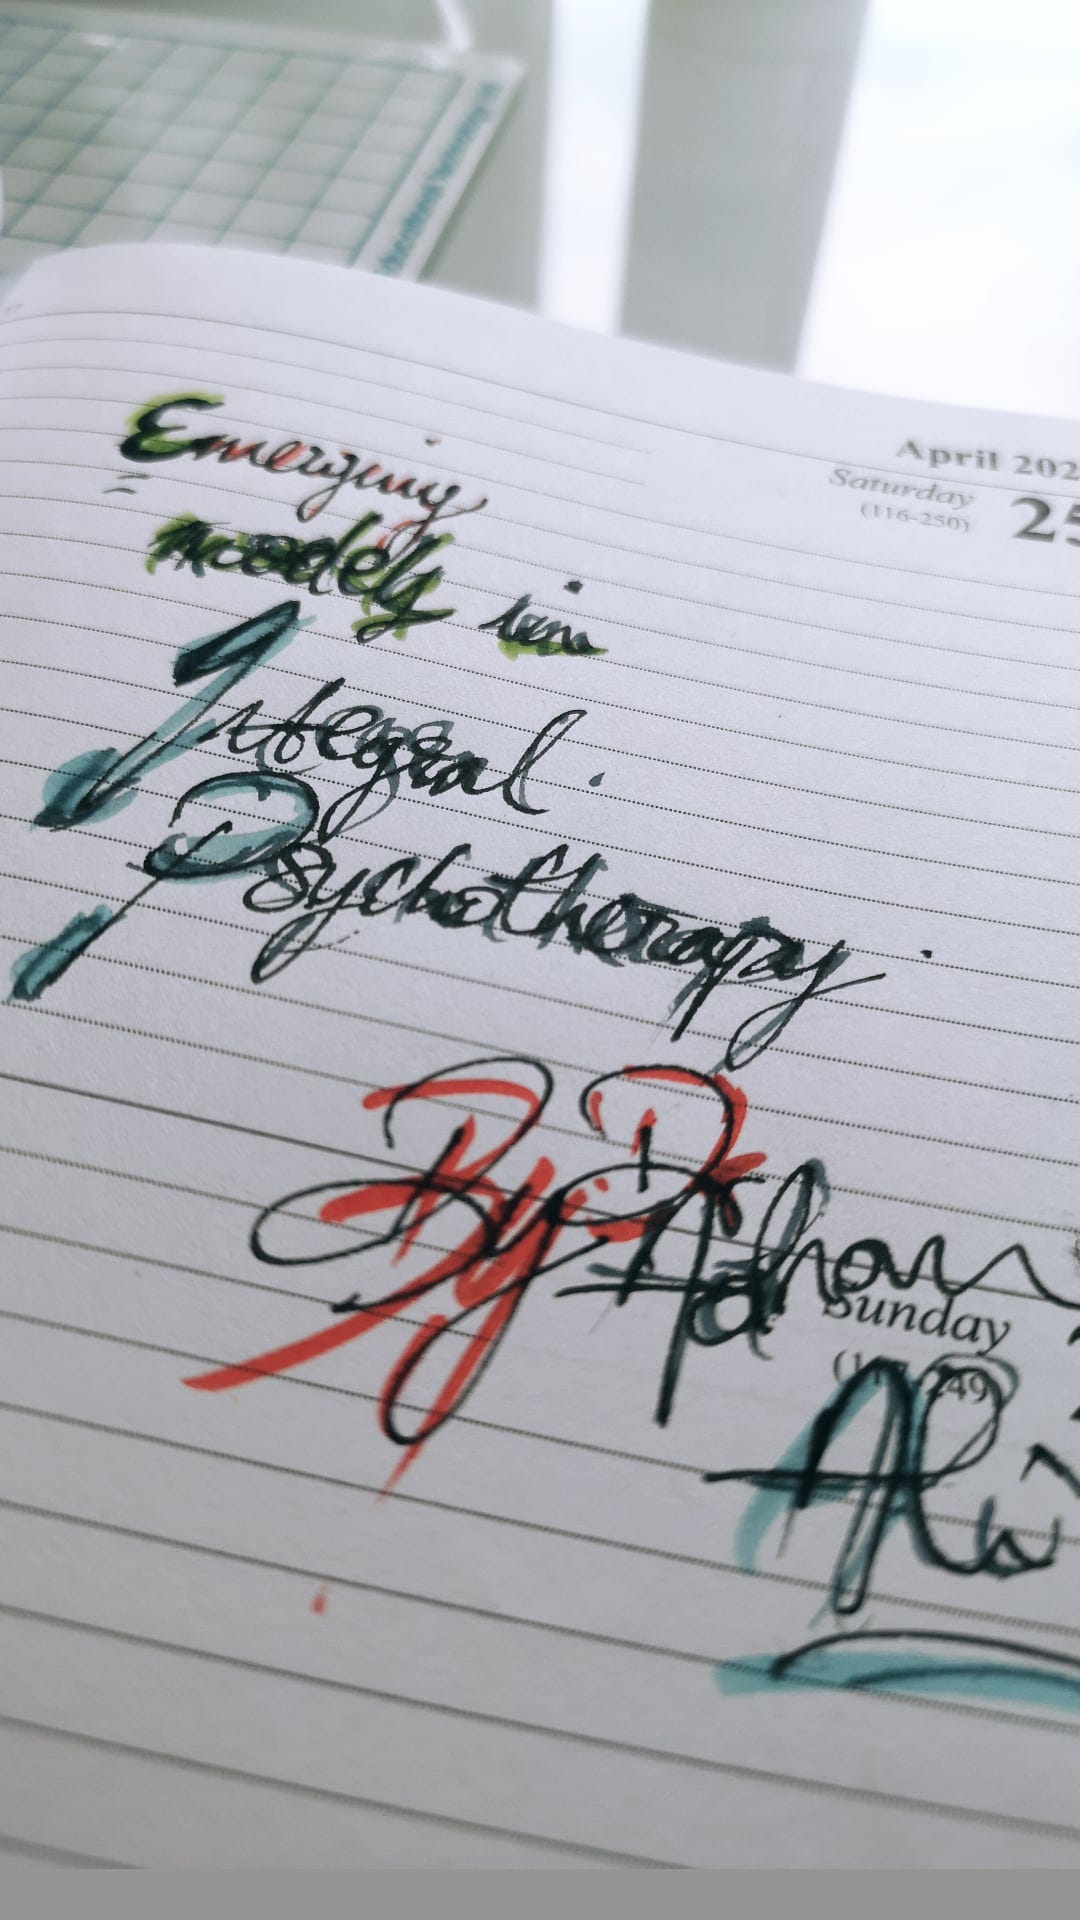 April 202
Saturday
25
(116-250)
Emerging
models in
Integral.
Psychotherapy.
By Dr
Adnan
Sunday
249)
Ali